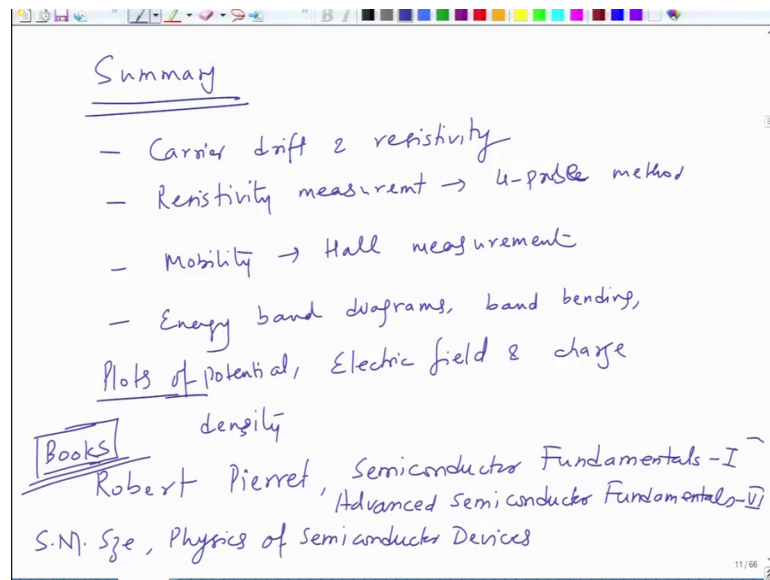 Summary
- Carrier drift & resistivity
- Resistivity measuremt → 4-probe method
- Mobility → Hall measurement
- Energy band diagrams, band bending,
Plots of potential, Electric field & charge
density
Books
Robert Pierret, Semiconductor Fundamentals-I
Advanced Semiconductor Fundamentals-VI
S.M. Sze, Physics of Semiconductor Devices
11 / 66